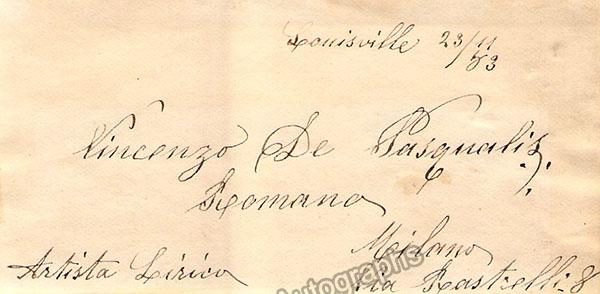 Louisville 23/11 83
Vincenzo De Pasqualis
Romano
Milano
Artista Lirico Via Rastrelli_8
Autographs